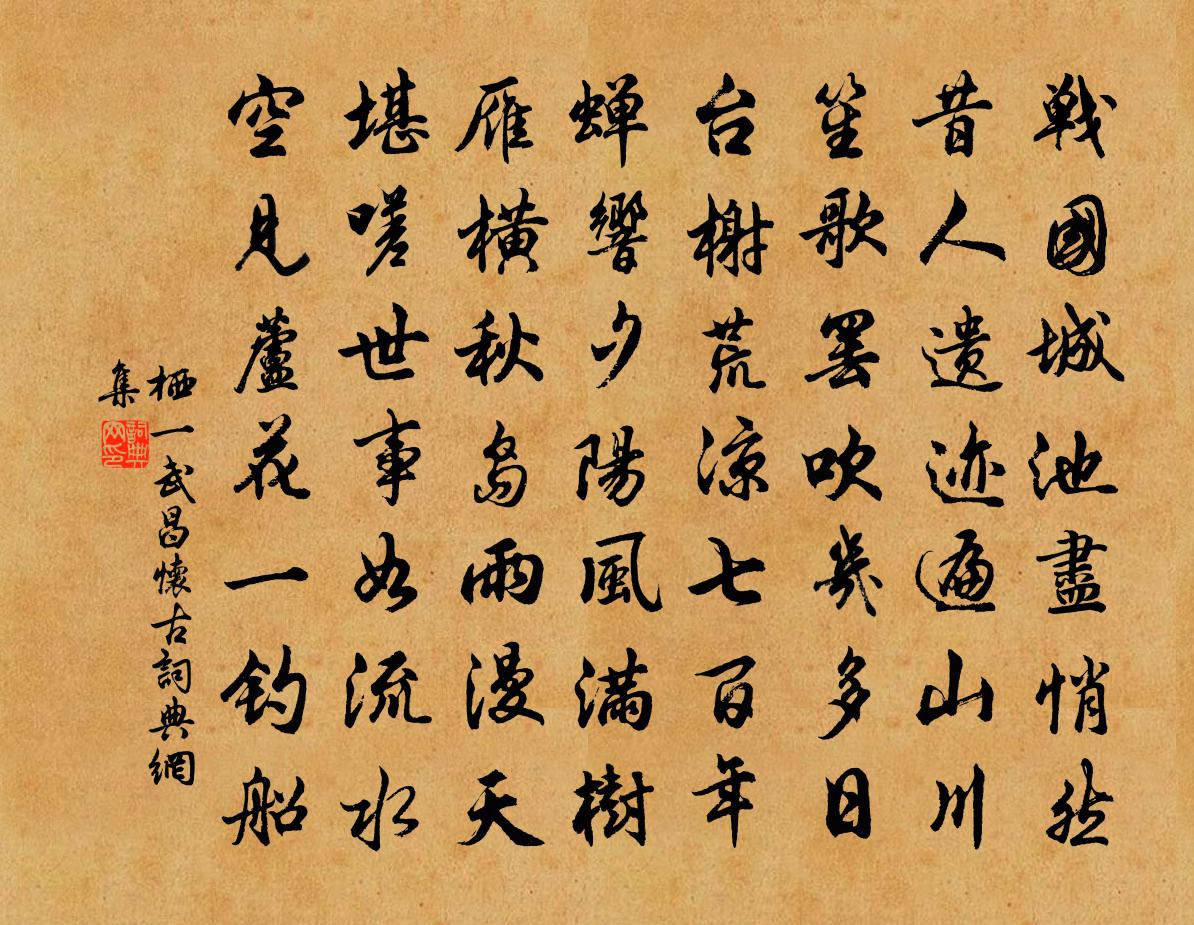 戦國城池盡悄然
昔人遗迹遍山川
笙歌罢吹幾多日
台榭荒凉七百年
蝉響夕陽風满樹
雁横秋島雨漫天
堪嗟世事如流水
空見蘆花一釣船
栖一武昌懷古詞典網
集
詞典網印